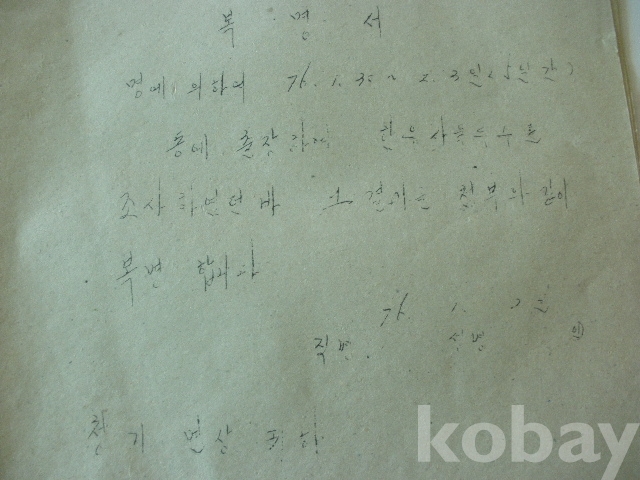 복 명 서
명에 의하여 76. 1. 30 ~ 2. 3일 (5일간)
동에 출장하여 한우사육두수를
조사하였던 바 그 결과는 첨부와 같이
복명 합니다
76. 1.
직명 성명 인
면상 귀하
kobay